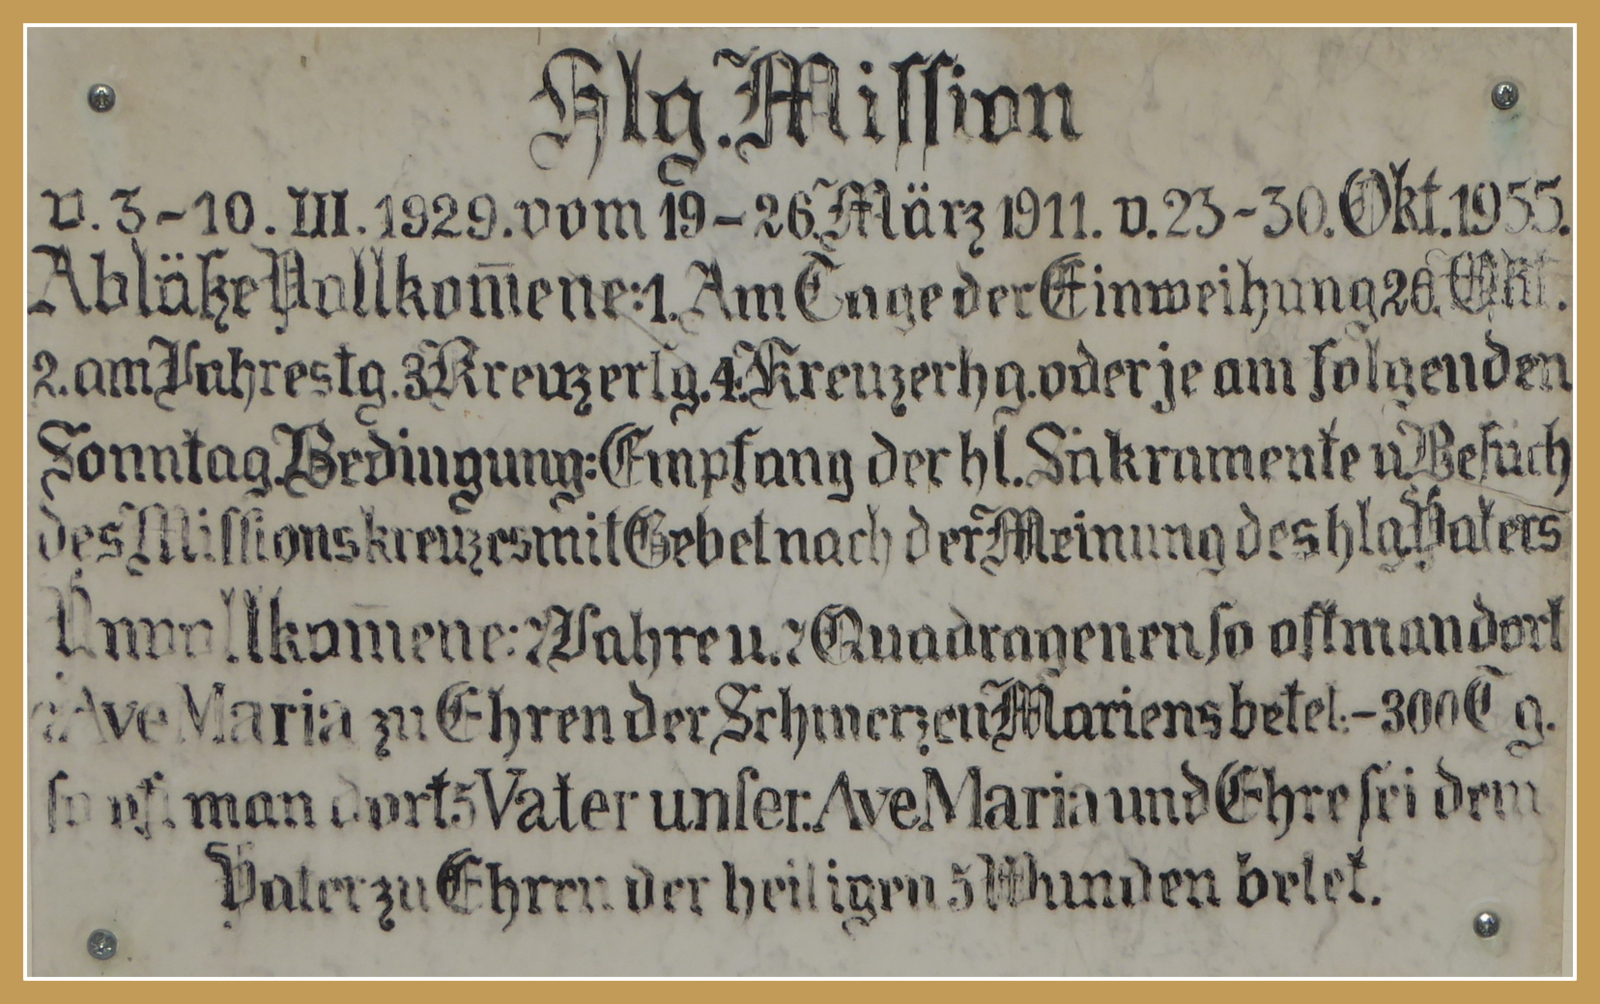 Hlg. Mission
v. 3-10. III. 1929. vom 19-26. März 1911. v. 23-30. Okt. 1955.
Abläße Vollkom̅ene: 1. Am Tage der Einweihung 26. Okt.
2. am Jahrestg. 3. Kreuzerfg. 4. Kreuzerhg. oder je am folgenden
Sonntag. Bedingung: Empfang der hl. Sakramente u. Besuch
des Missionskreuzes mit Gebet nach der Meinung des hlg. Vaters
Unvollkom̅ene: 7 Jahre u. 7 Quadragenen so oft man dort
Ave Maria zu Ehren der Schmerzen Mariens betet. - 300 T g.
so oft man dort 5 Vater unser. Ave Maria und Ehre sei dem
Vater zu Ehren der heiligen 5 Wunden betet.